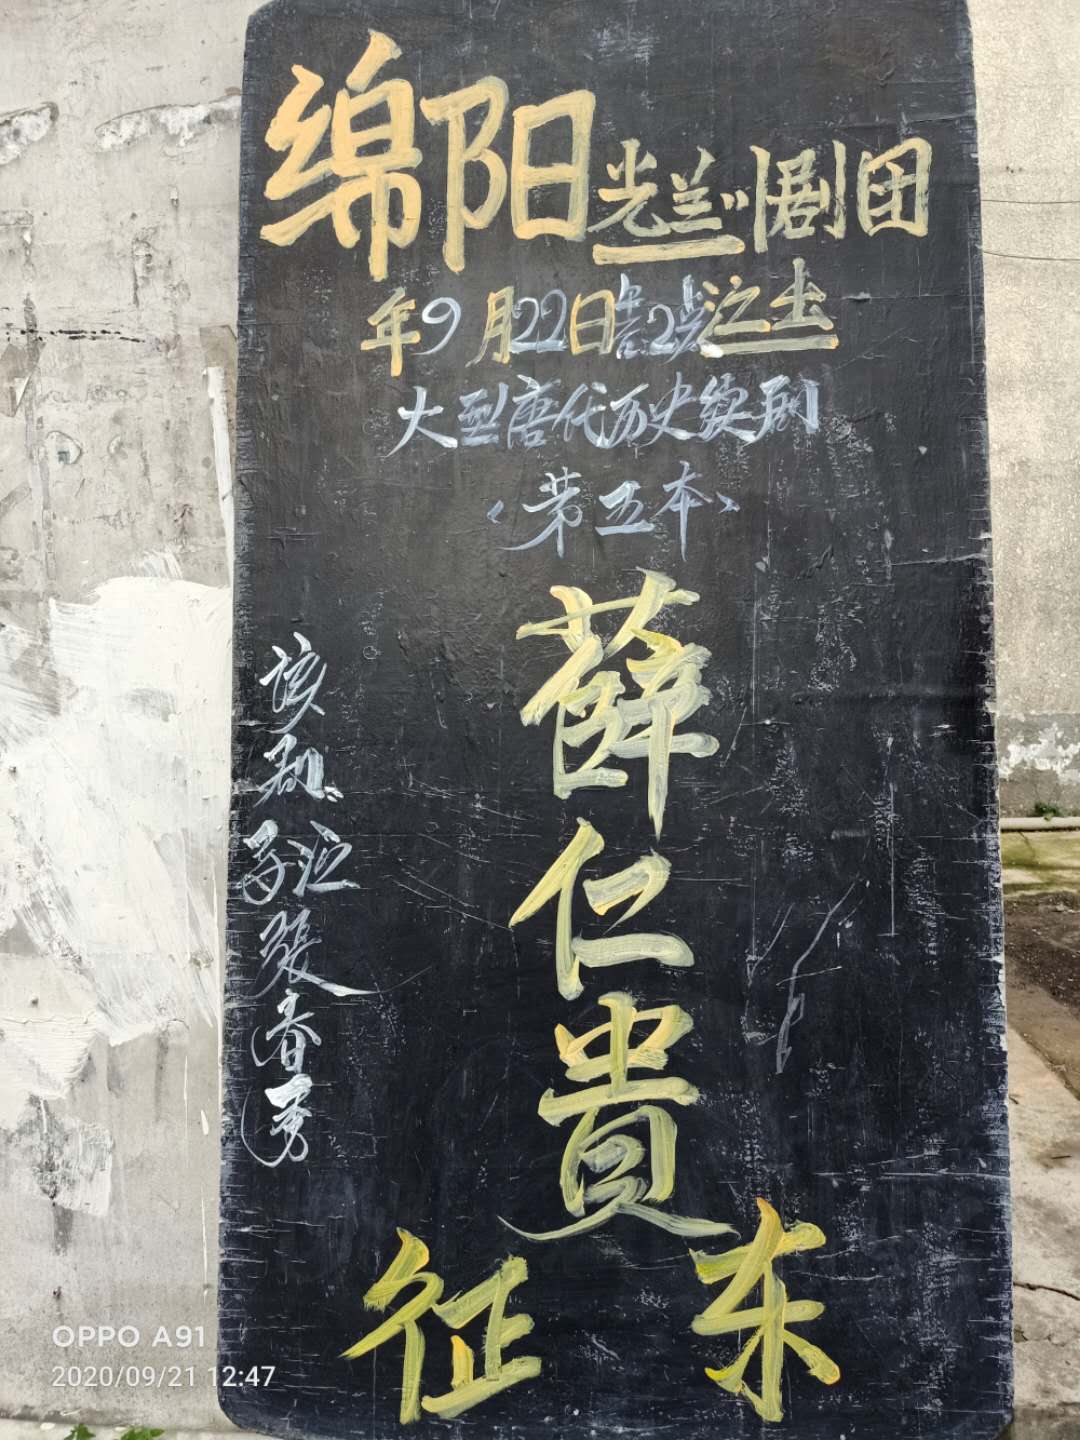 绵阳光兰川剧团
年9月22日
大型唐代历史续剧
《第五本》
薛仁贵
征东
该剧
张春秀
OPPO A91
2020/09/21 12:47